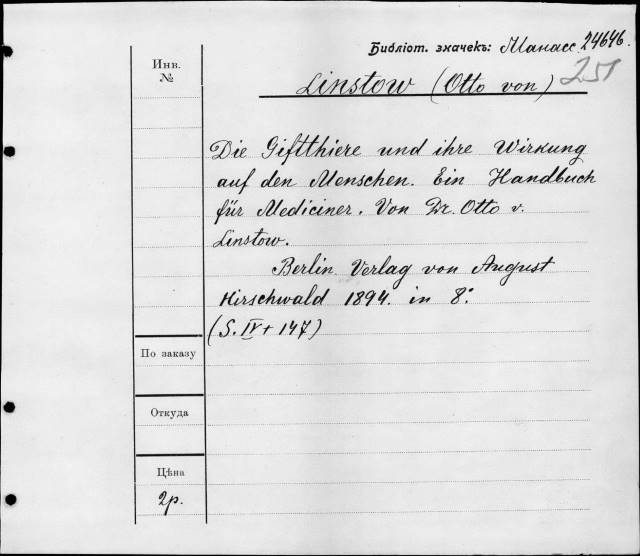 Библіот. значекъ: Манасс. 24646.
251
Инв.
№
Linstow (Otto von)
Die Giftthiere und ihre Wirkung
auf den Menschen. Ein Handbuch
für Mediciner. Von Dr. Otto v.
Linstow.
Berlin Verlag von August
Hirschwald 1894. in 8º.
(S. IV + 147)
По заказу
Откуда
Цѣна
2р.